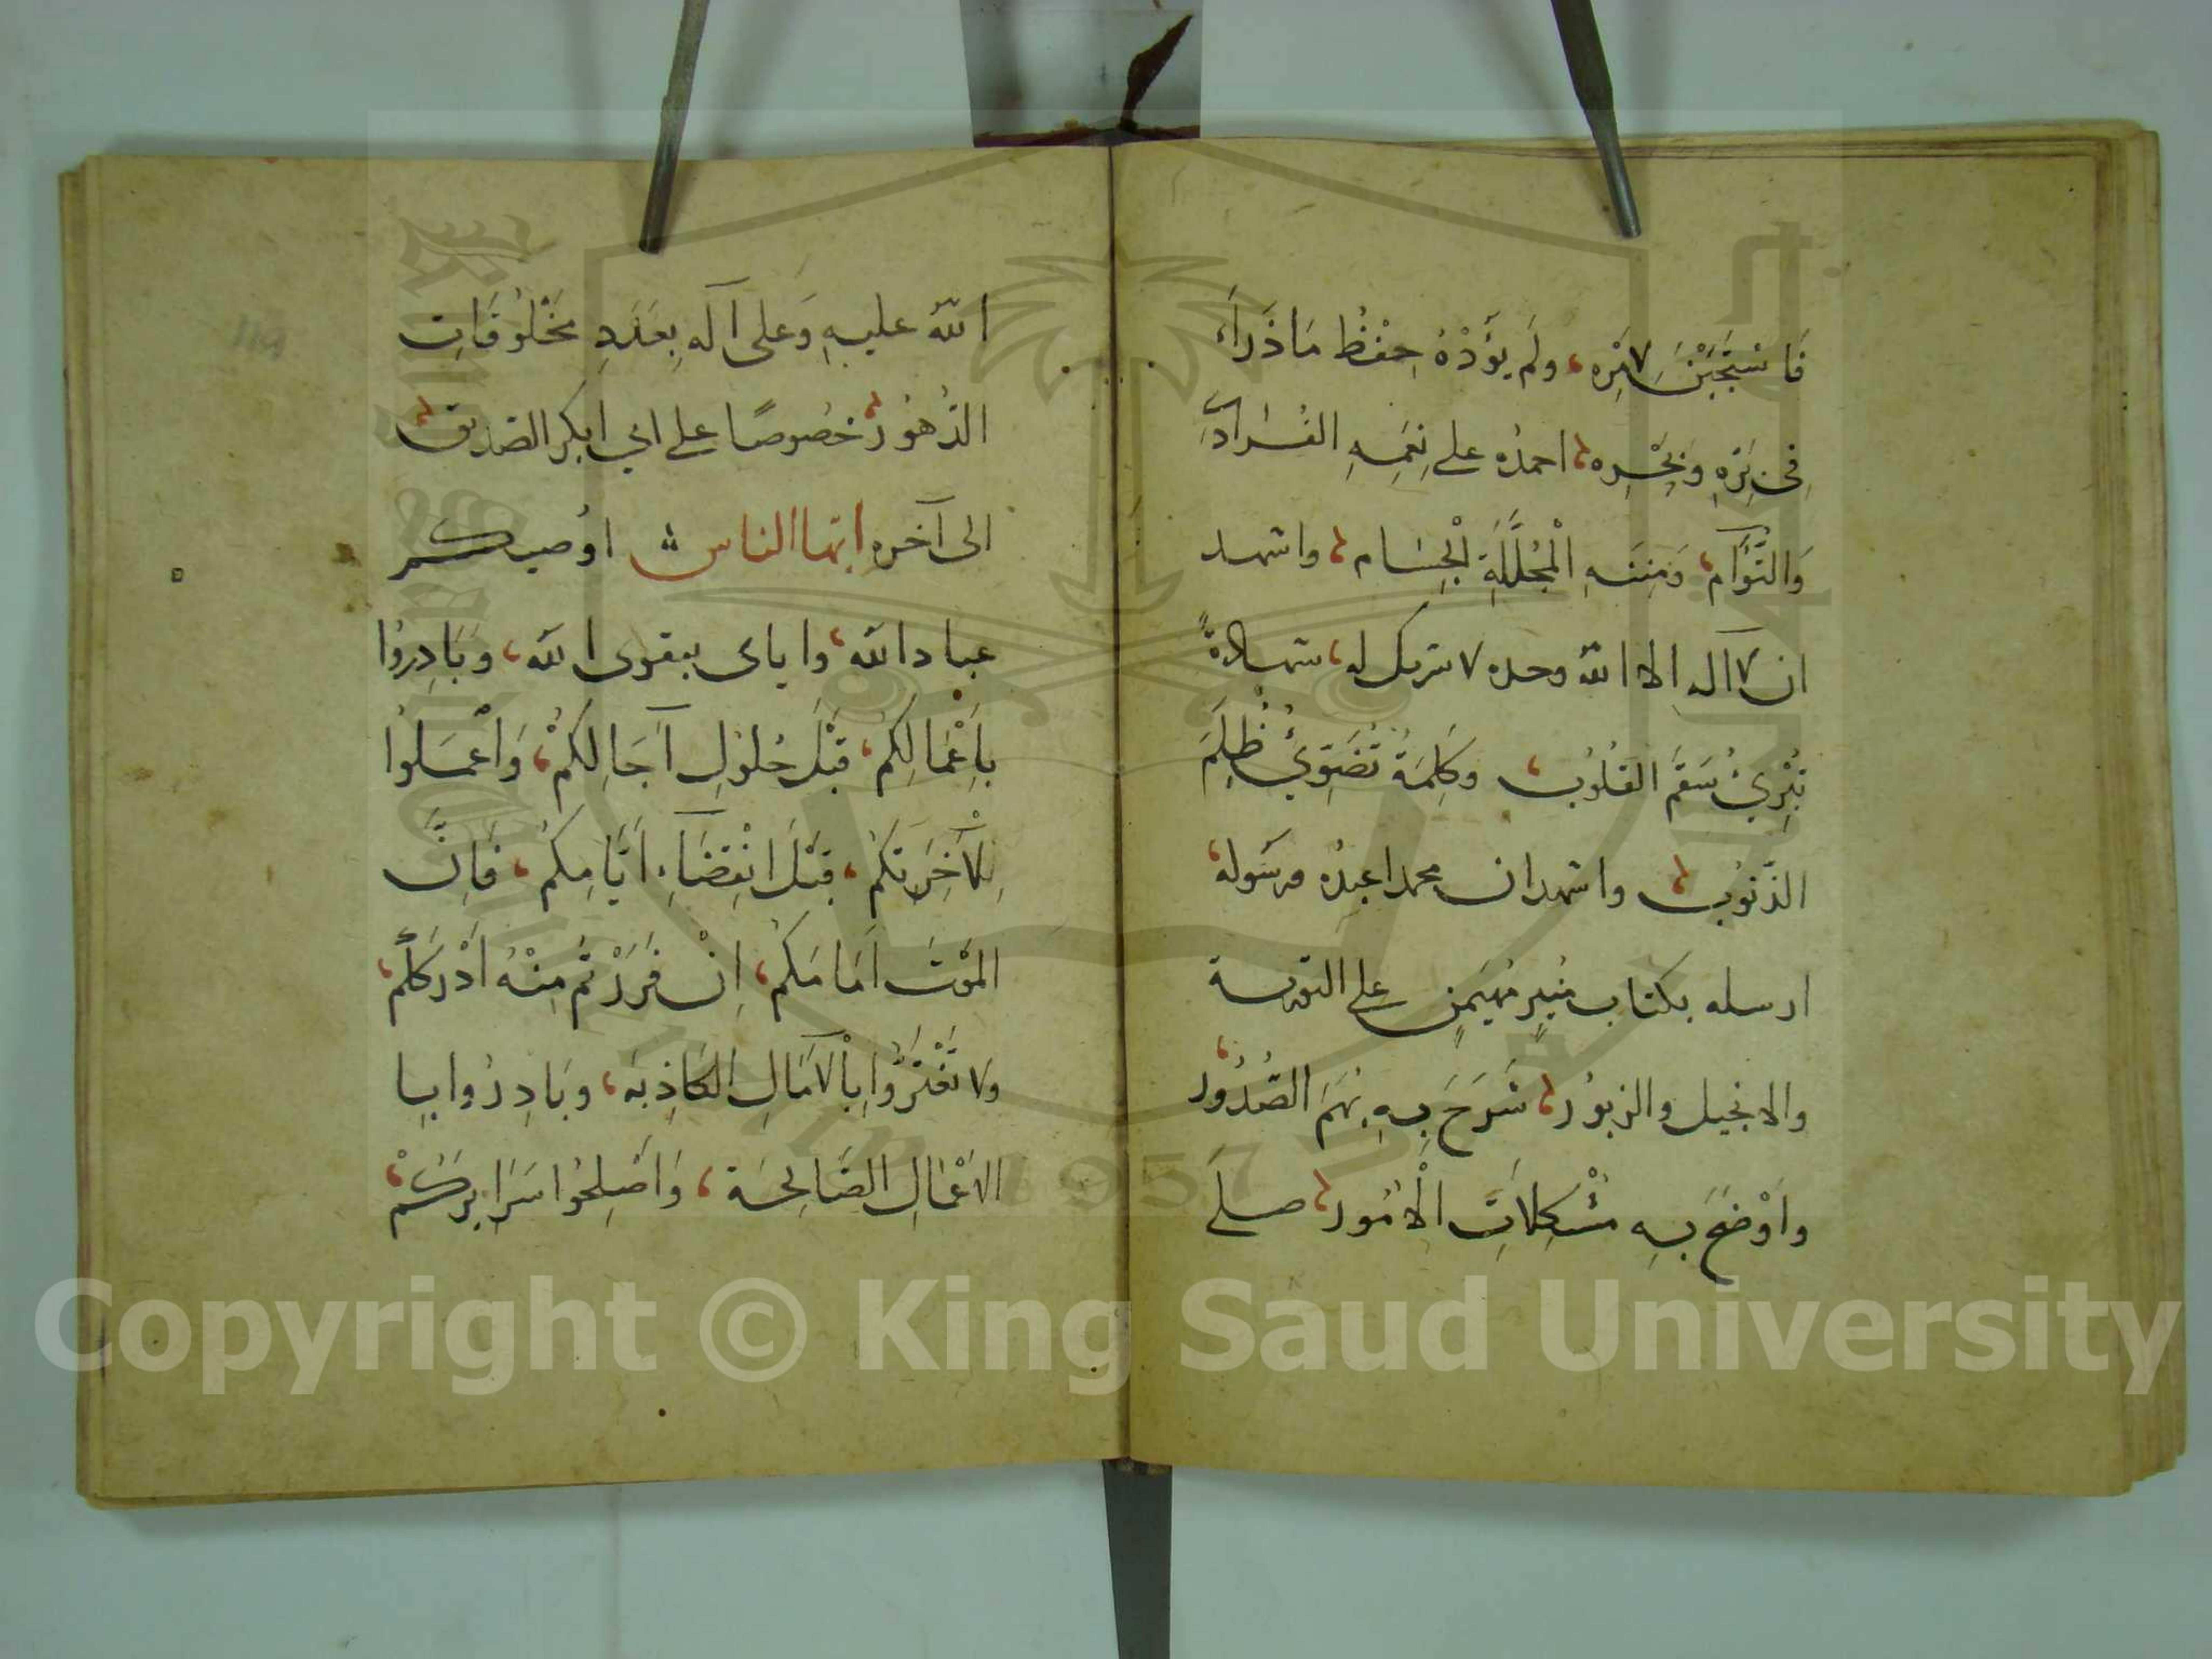 فَاسْتَجَبْنَ لِأَمْرِه، ولَم يَؤُدْهُ حِفْظُ مَا ذَرَاَءَ
فِى بَرِّهِ وَبَحْرِه، احمدُه على نِعَمِهِ الفُرَادَى
وَالتُّؤَآم، وَمِنَنِهِ الْمُجَلَّلَةِ الْجِسَام، واشهد
ان لا آله الا الله وحده لا شريك له، شهادةً
تُبْرِئُ سَقَمَ القلُوُبِ، وكَلِمَةً تُضَوِّئُ ظُلَمَ
الذّنوُبِ، واشهد ان محمدا عبدُه ورسَوله،
ارسله بكتاب منُيرٍ مُهَيمَنٍ على التورية
والانجيل والزبوُر، شَرَحَ بِهِ بُهَمَ الصُّدُوُر،
واَوْضَحَ بِهِ مُشْكِلاَتِ الْاُمُور، صلَى
الله عليهِ وَعلى آله بِعَدَدِ مَخْلُوُقَاتِ
الدُهوُر، خصُوصًا على ابي ابكر الصّديق،
الى آخره ايّها الناس اوُصيكم
عباد الله، واياى بتقوى الله، وَبَادِروُا
بِاَعْمَالِكُم، قَبْلَ حُلوُلِ آجَالِكُمْ، وَاَعْمَلوُا
لِآخِرَتِكُم، قَبْلَ انْقِضَآءِ اَيَّامِكُم، فَاِنَّ
المَوْتَ اَمَامَكُم، اِنْ فَرَرْتُم مِنْهُ اَدْرَكَكُم،
ولا تَغْتَرُّوُا بِالْآمَالِ الكَاذِبَه، وبَادِرُوا بِا
الاَعْمَالِ الصَّالِحَة، وَاَصْلِحُوا سَرَايِرَكُمْ،
Copyright © King Saud University
1957